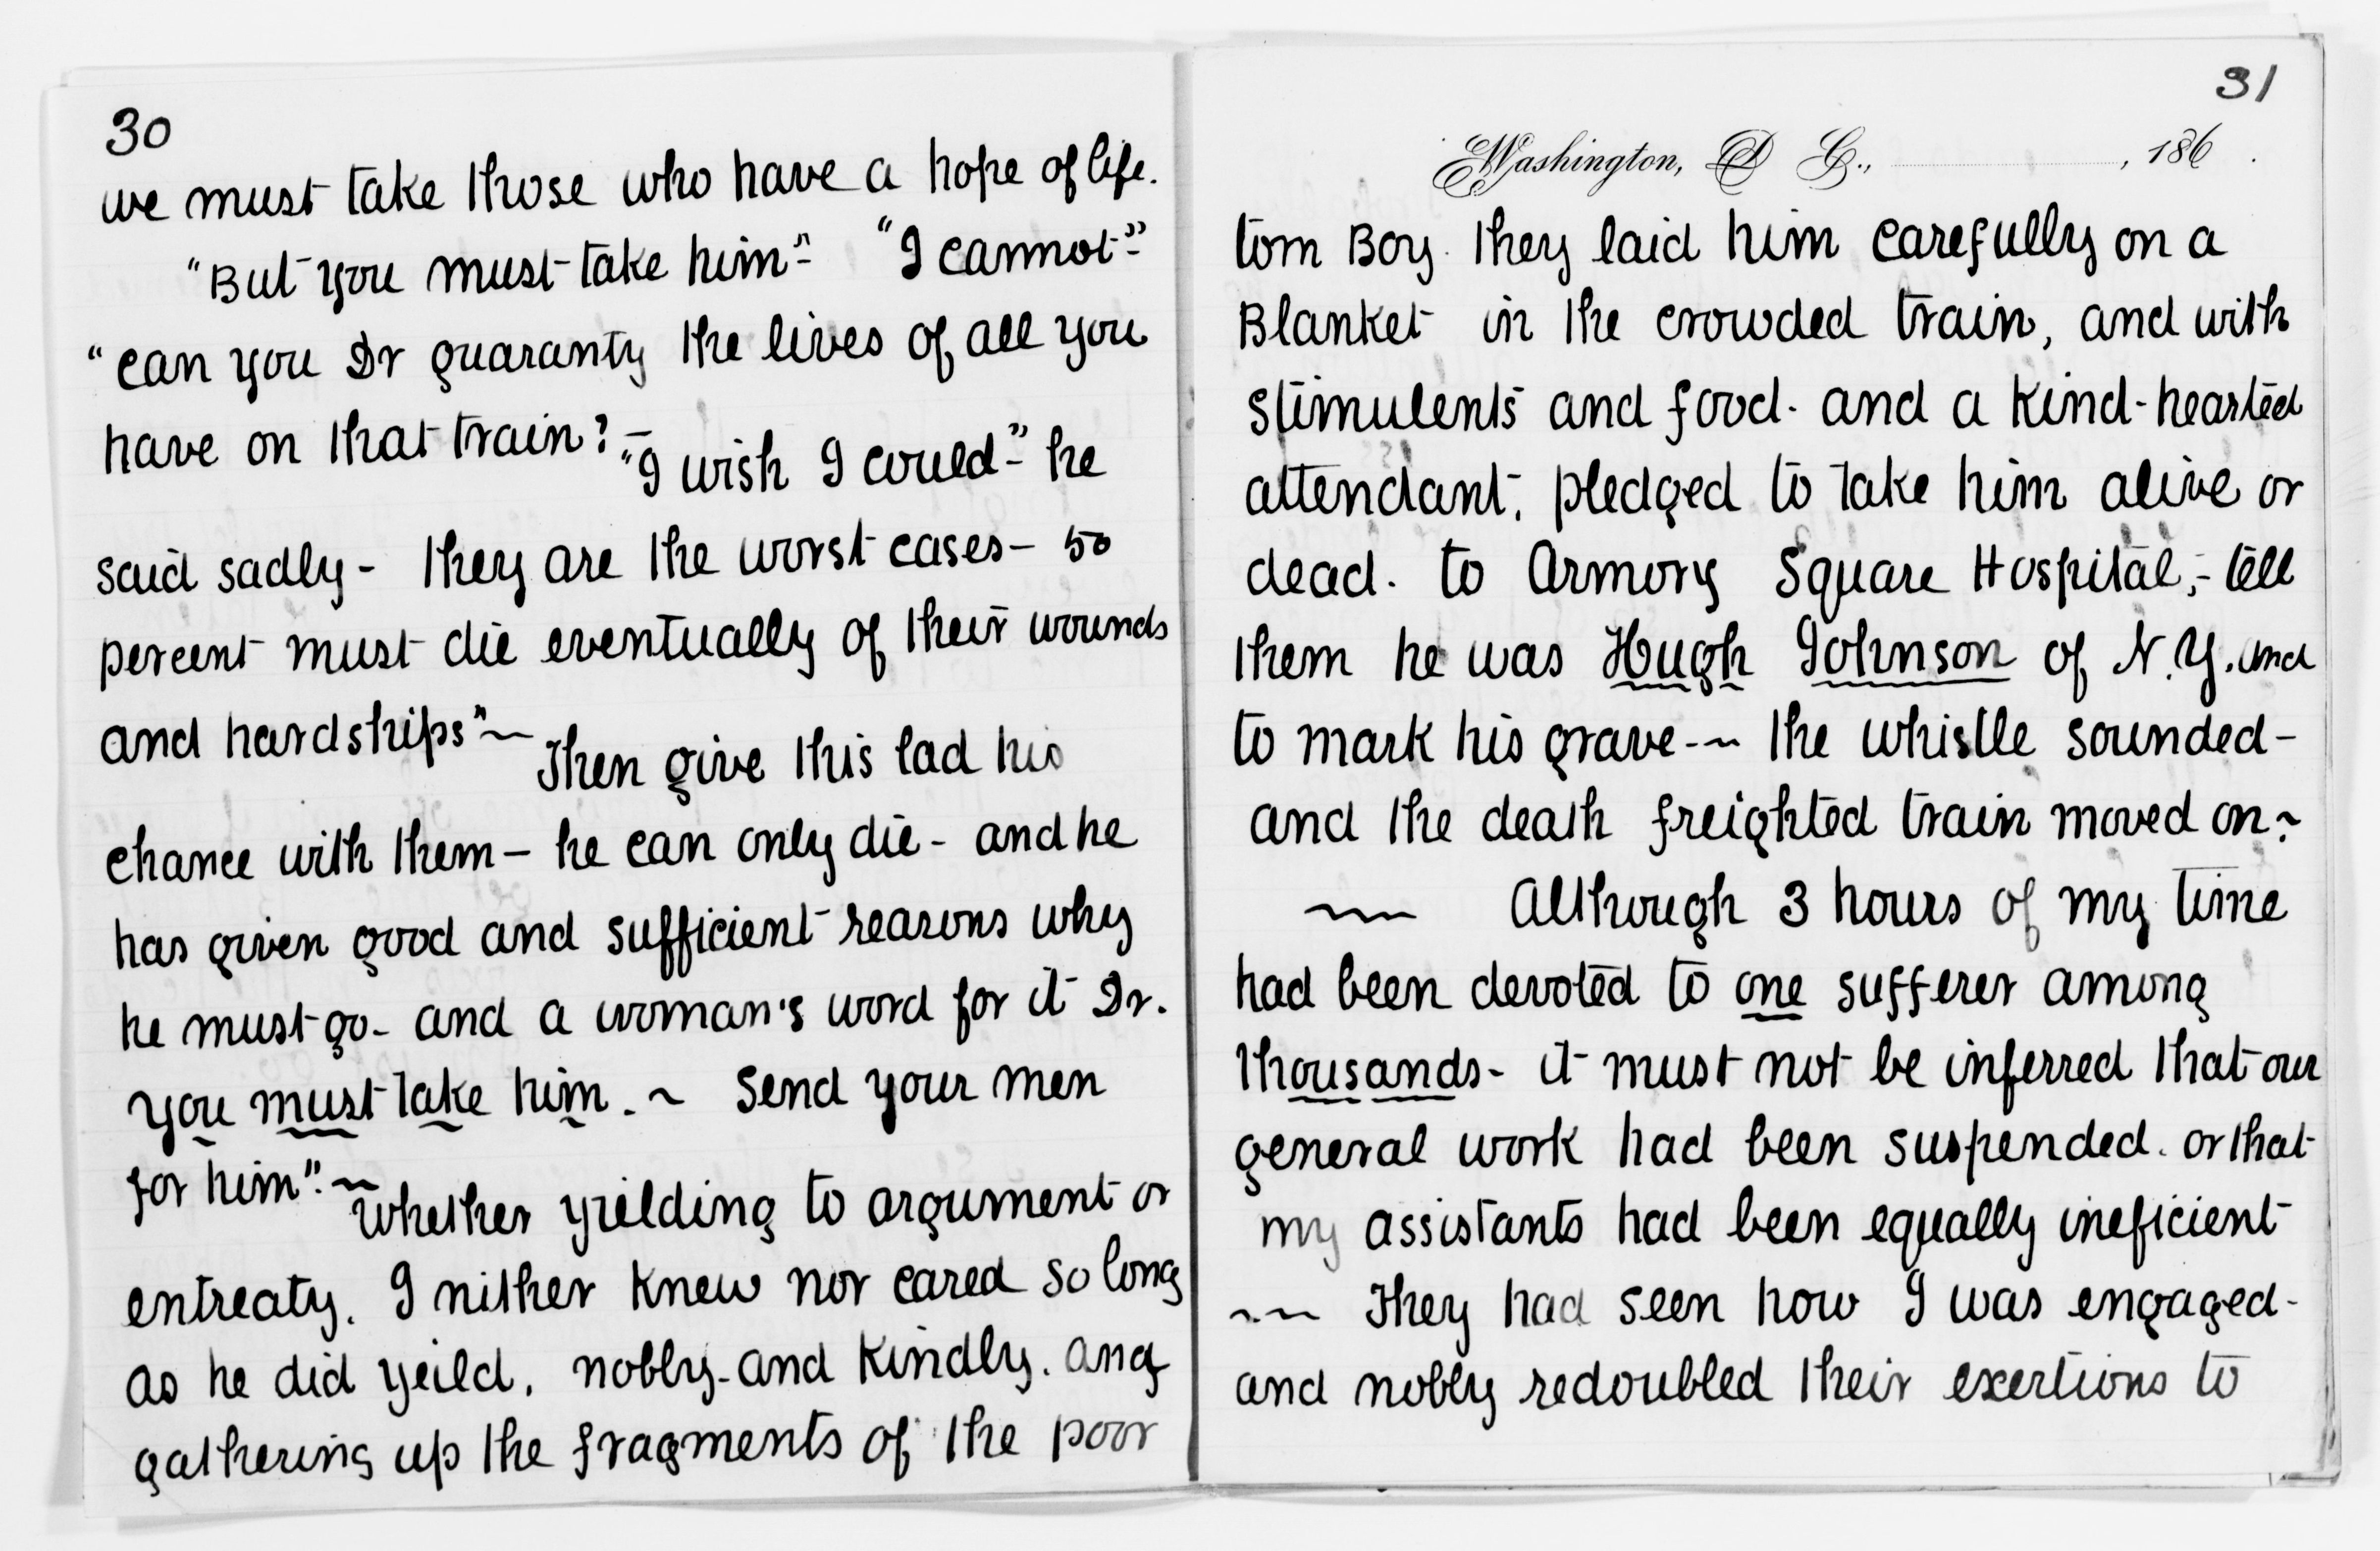 30
we must take those who have a hope of life.
"But you must take him" - "I cannot" -
"can you Dr guaranty the lives of all you
have on that train? -
"I wish I could" - he
said sadly - they are the worst cases - 50
percent must die eventually of their wounds
and hardships" ~
Then give this lad his
chance with them - he can only die - and he
has given good and sufficient reasons why
he must go - and a woman's word for it Dr.
you must take him. ~ Send your men
for him". ~
Whether yielding to argument or
entreaty. I nither knew nor cared so long
as he did yeild. nobly - and kindly. and
gathering up the fragments of the poor
31
Washington, D. C., , 186 .
torn Boy. they laid him carefully on a
Blanket in the crowded train, and with
stimulents and food. and a kind-hearted
attendant. pledged to take him alive or
dead. to Armory Square Hospital; - tell
them he was Hugh Johnson of N.Y. and
to mark his grave - ~ the whistle sounded -
and the death freighted train moved on ~
~ Although 3 hours of my time
had been devoted to one sufferer among
thousands - it must not be inferred that our
general work had been suspended. or that
my assistants had been equally ineficient
~ They had seen how I was engaged -
and nobly redoubled their exertions to